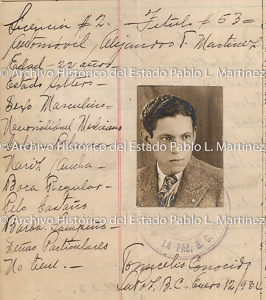 Licencia # 2. - Título # 53 =
Automóvil, Alejandro P. Martínez
Edad - 22 años -
© Archivo Histórico del Estado Pablo L. Martínez
Estado Soltero -
Sexo Masculino -
Nacionalidad Mexicano
© Archivo Histórico del Estado Pablo L. Martínez
Nariz Ancha -
Boca Regular -
Pelo Castaño
© Archivo Histórico del Estado Pablo L. Martínez
Barba Lampiño -
Señas Particulares
No tiene. -
LA PAZ, B. C.
© Archivo Histórico del Estado Pablo L. Martínez
Domicilio Conocido
B. C. Enero 12/93